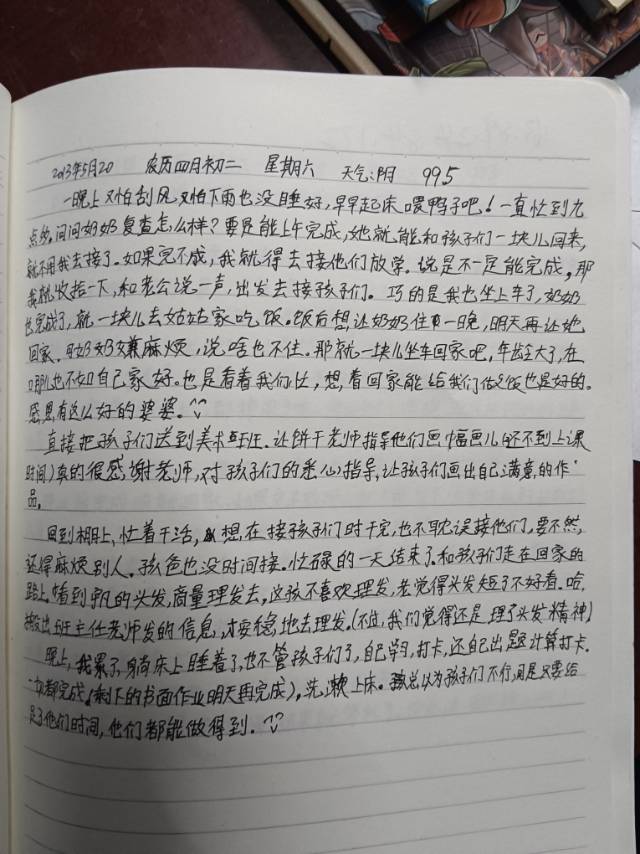 2013年5月20 农历四月初二 星期六 天气:阴 995
一晚上又怕刮风又怕下雨也没睡好,早早起床喂鸭子吧!一直忙到九
点多,问问奶奶复查怎么样?要是能上午完成,她就能和孩子们一块儿回来,
就不用我去接了。如果完不成,我就得去接他们放学。说是不一定能完成,那
我就收拾一下,和老公说一声,出发去接孩子们。巧的是我也坐上车了,奶奶
也完成了,就一块儿去姑姑家吃饭。饭后想让奶奶住一晚,明天再让她
回家,奶奶嫌麻烦,说啥也不住。那就一块儿坐车回家吧,年龄大了,在
哪儿也不如自己家好。也是看着我们忙,想着回家能给我们做做饭也是好的。
感恩有这么好的婆婆。
直接把孩子们送到美术班。让饼干老师指导他们画幅画儿(还不到上课
时间)真的很感谢老师,对孩子们的悉心指导,让孩子们画出自己满意的作
品。
回到棚上,忙着干活,想在接孩子们时干完,也不耽误接他们,要不然,
还得麻烦别人。孩爸也没时间接。忙碌的一天结束了,和孩子们走在回家的
路上,看到凡的头发,商量理发去,这孩不喜欢理发,老觉得头发短了不好看。哈,
搬出班主任老师发的信息,才安稳地去理发。(不过,我们觉得还是理了头发精神)
晚上,我累了,躺床上睡着了,也不管孩子们了,自己学习,打卡,还自己出题计算打卡.
都完成(剩下的书面作业明天再完成),洗漱上床。总以为孩子们不行,可是只要给
足了他们时间,他们都能做得到.